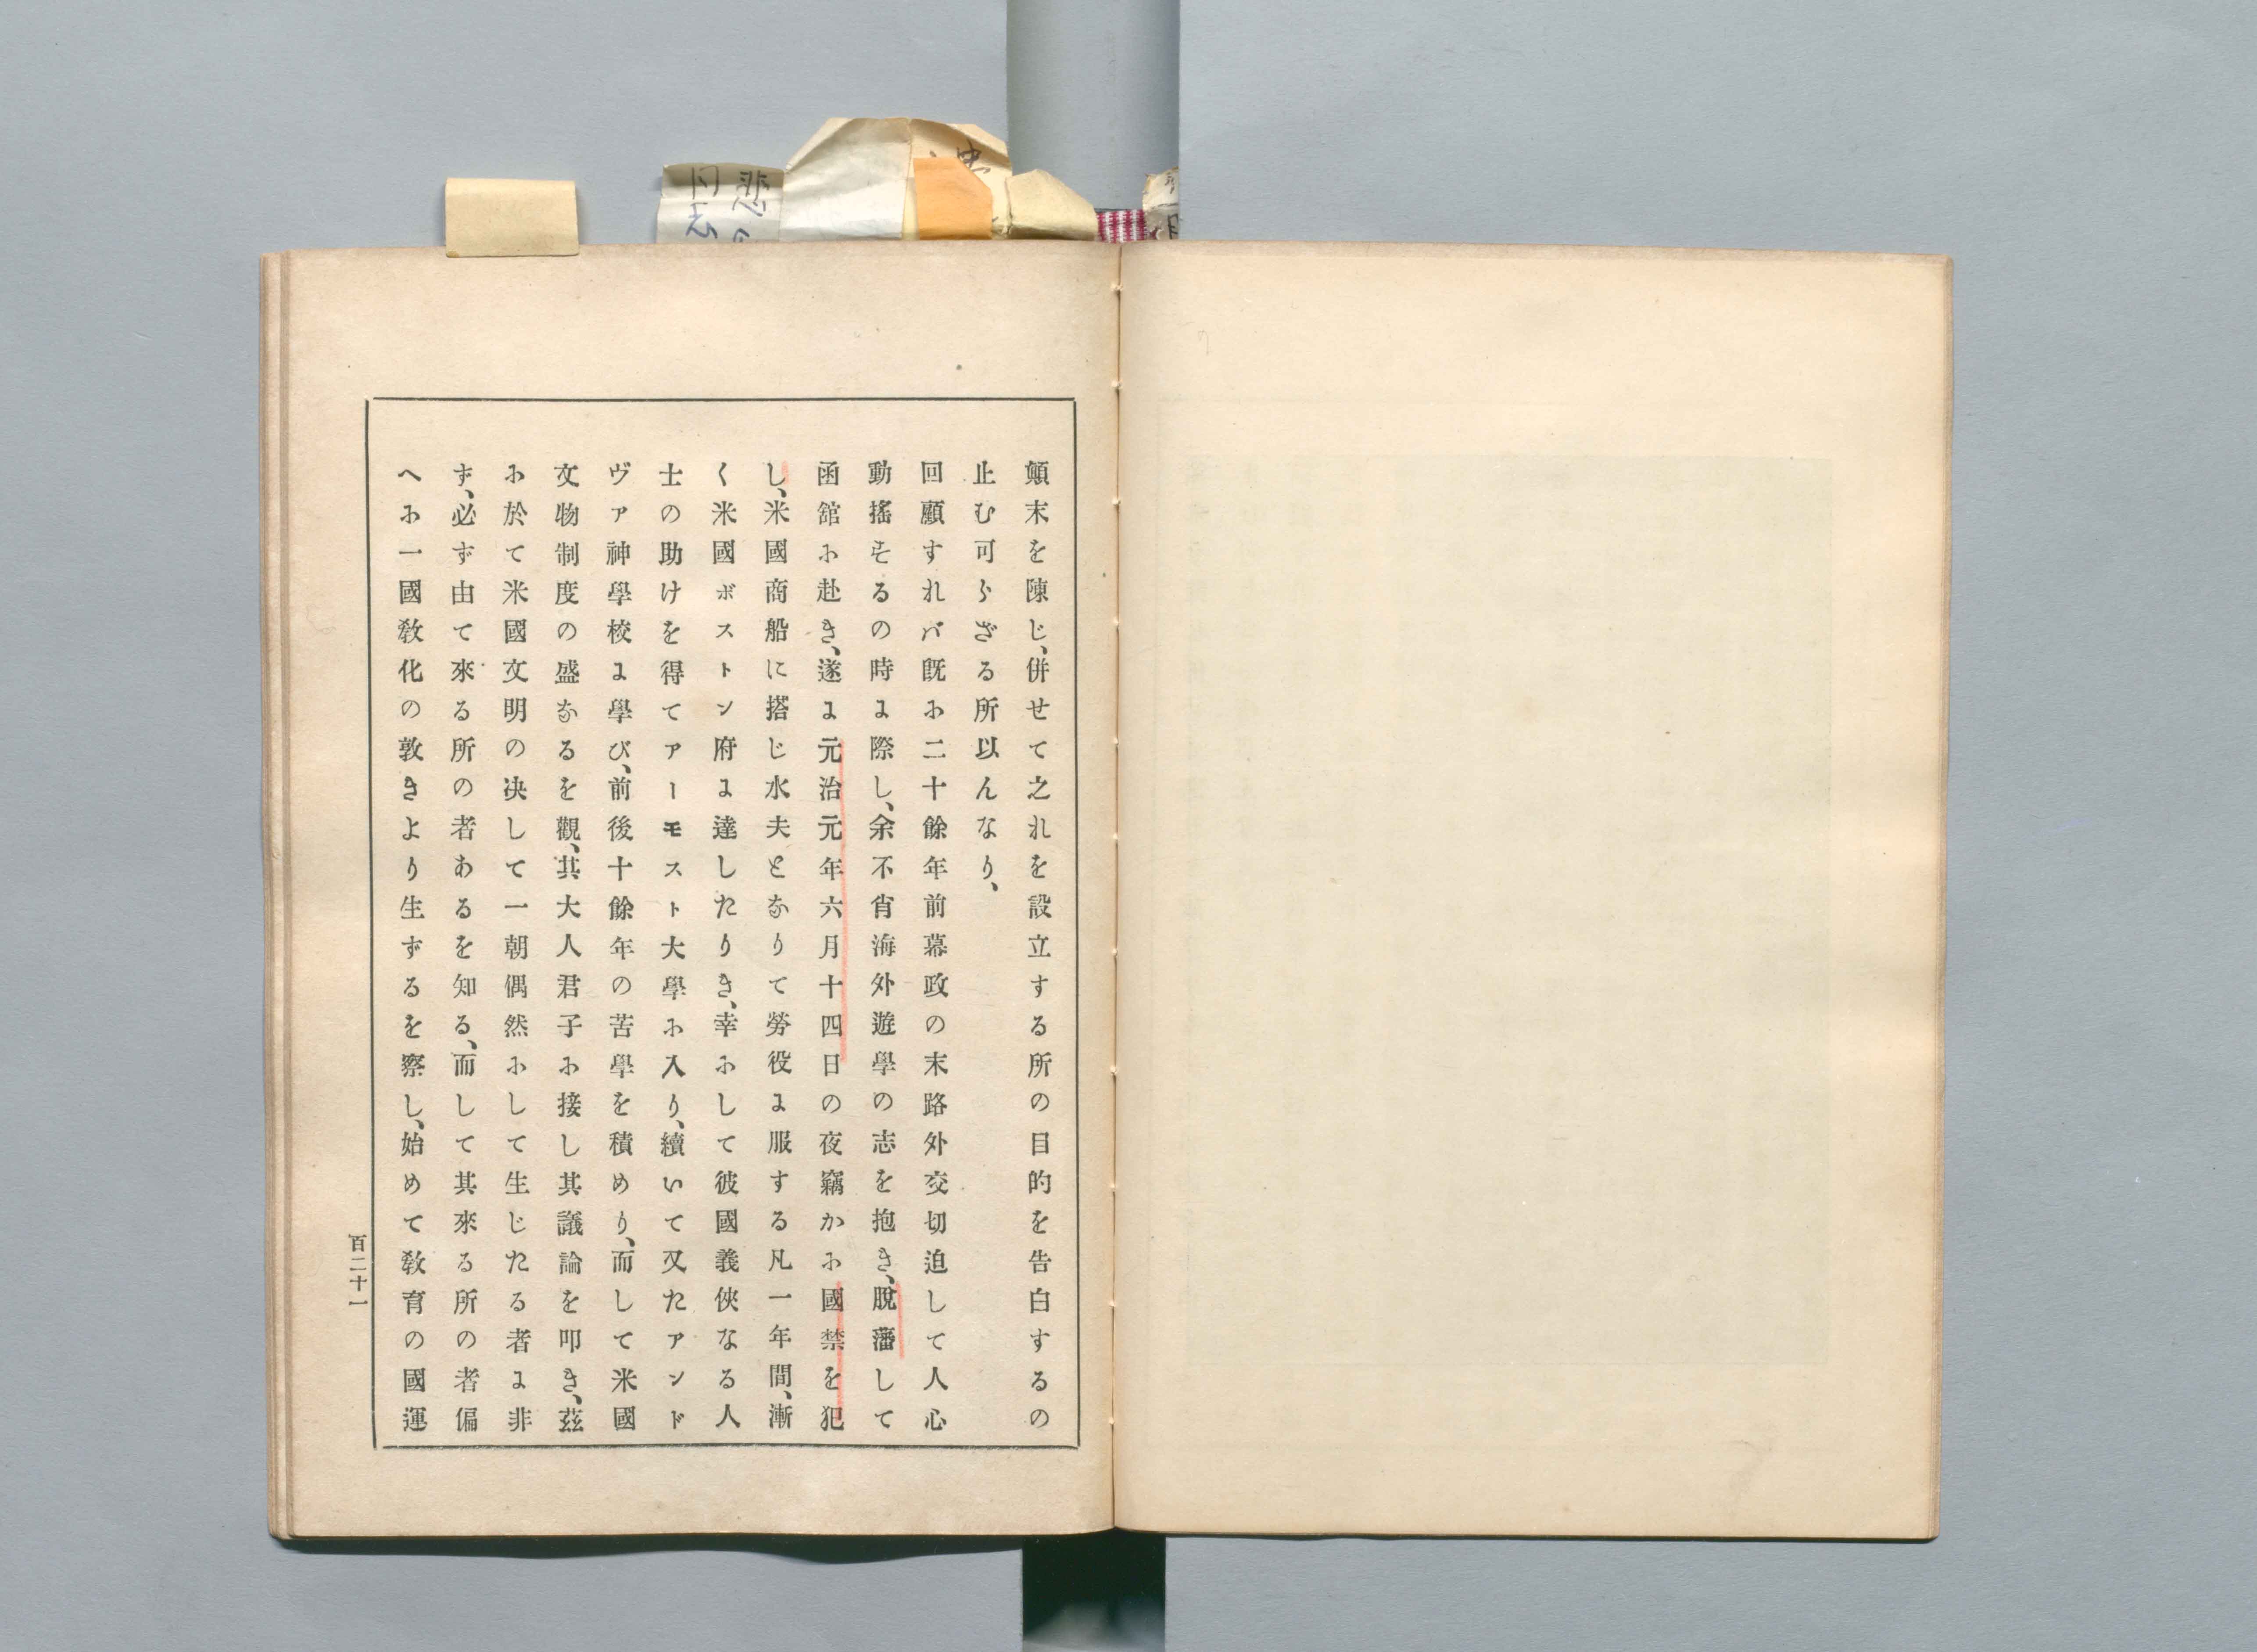 顚末を陳じ、併せて之れを設立する所の目的を告白するの
止む可らざる所以んなり、
回顧すれバ既に二十餘年前幕政の末路外交切迫して人心
動搖するの時に際し、余不肖海外遊學の志を抱き、脫藩して
函舘に赴き、遂に元治元年六月十四日の夜竊かに國禁を犯
し、米國商船に搭じ水夫となりて勞役に服する凡一年間、漸
く米國ボストン府に達したりき、幸にして彼國義俠なる人
士の助けを得てアーモスト大學に入り、續いて又たアンド
ヴァ神學校に學び、前後十餘年の苦學を積めり、而して米國
文物制度の盛なるを觀、其大人君子に接し其議論を叩き、茲
に於て米國文明の决して一朝偶然にして生じたる者に非
ず、必ず由て來る所の者あるを知る、而して其來る所の者偏
へに一國敎化の敦きより生ずるを察し、始めて敎育の國運
百二十一